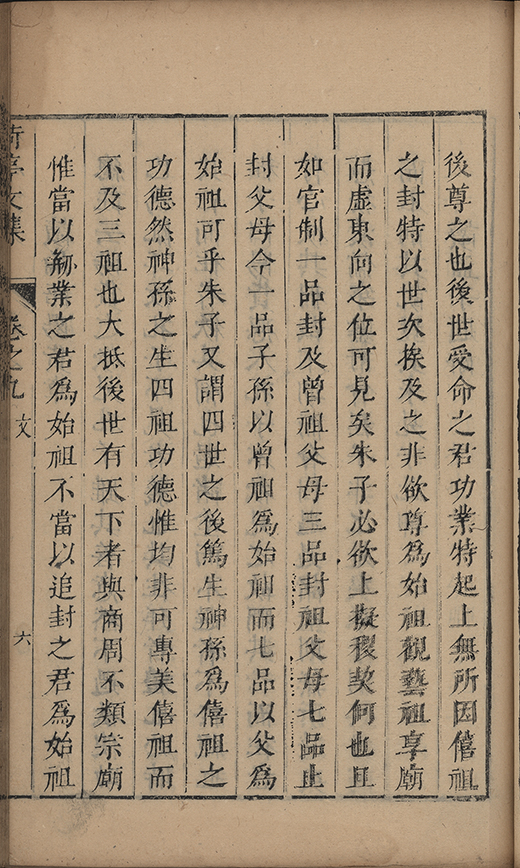 後尊之也後世受命之君功業特起上無所因僖祖
之封特以世次挨及之非欲尊為始祖觀藝祖享廟
而虛東向之位可見矣朱子必欲上擬稷契何也且
如官制一品封及曾祖父母三品封祖父母七品止
封父母今一品子孫以曾祖為始祖而七品以父為
始祖可乎朱子又謂四世之後篤生神孫為僖祖之
功德然神孫之生四祖功德惟均非可專美僖祖而
不及三祖也大抵後世有天下者與商周不類宗廟
惟當以剏業之君為始祖不當以追封之君為始祖
亭文集 卷之九 文 六